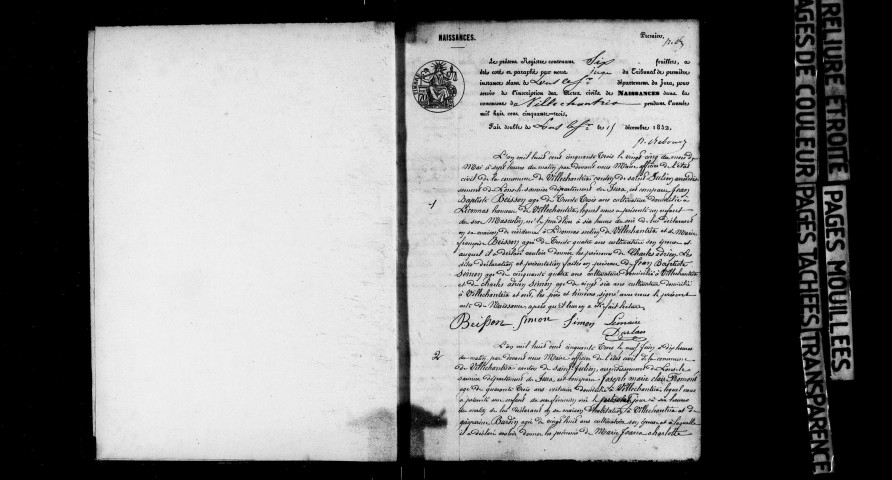 NAISSANCES.
Premier,
Le présent Registre contenant Six feuillets, a
été coté et paraphé par nous Juge du Tribunal de première
instance séant de Lons le Sr département du Jura, pour
servir de l'inscription des Actes civils de NAISSANCES dans la
commune de Villechantria pendant l'année
mil huit cent cinquante-trois.
Fait double de Lons le Sr le 15 décembre 1852.
1
L'an mil huit cent cinquante trois le vingt cinq du mois de
Mai à sept heures du matin par devant nous Maire officier de l'état
civil de la commune de Villechantria canton de saint Julien arrondis
sement de Lons le saunier département du Jura, est comparu Jean
Baptiste Beisson age de Trente Trois ans cultivateur domicilié à
Liconnas hameau de Villechantria, lequel nous a présenté un enfant
du sexe Masculin, né le jour d'hier à six heures du soir de lui déclarant
en sa maison de résidence à Liconnas section de Villechantria et de Marie
françoise Beisson agée de Trente quatre ans cultivatrice son épouse et
auquel il a déclaré vouloir donner les prénoms de Charles adrien. Les
dites déclaration et présentation faites en présence de Jean Baptiste
Simon age de cinquante quatre ans cultivateur domicilié à Villechantria
et de charles adrien Simon age de vingt six ans cultivateur domicilié
à Villechantria et ont, les père et témoins signé avec nous le présent
acte de Naissance après qu'il leur en a été fait lecture.
Beisson Simon Simon Lemaire
2
L'an mil huit cent cinquante Trois le neuf Juin à dix heures
du matin, par devant nous Maire officier de l'état civil de la commune
de Villechantria canton de saint Julien, arrondissement de Lons le
saunier département du Jura, est comparu Joseph marie elise
age de quarante Trois ans domicilié à Villechantria, lequel nous
a présenté un enfant du sexe féminin née le jour à six heures
du matin de lui déclarant en sa maison d'habitation à Villechantria et de
Bardin agée de vingt huit ans cultivatrice son épouse et à laquelle
il a déclaré vouloir donner les prénoms de Marie Joana charlotte
RELIURE ETROITE
PAGES DE COULEUR
PAGES MOUILLEES
PAGES TACHEES
TRANSPARENCE